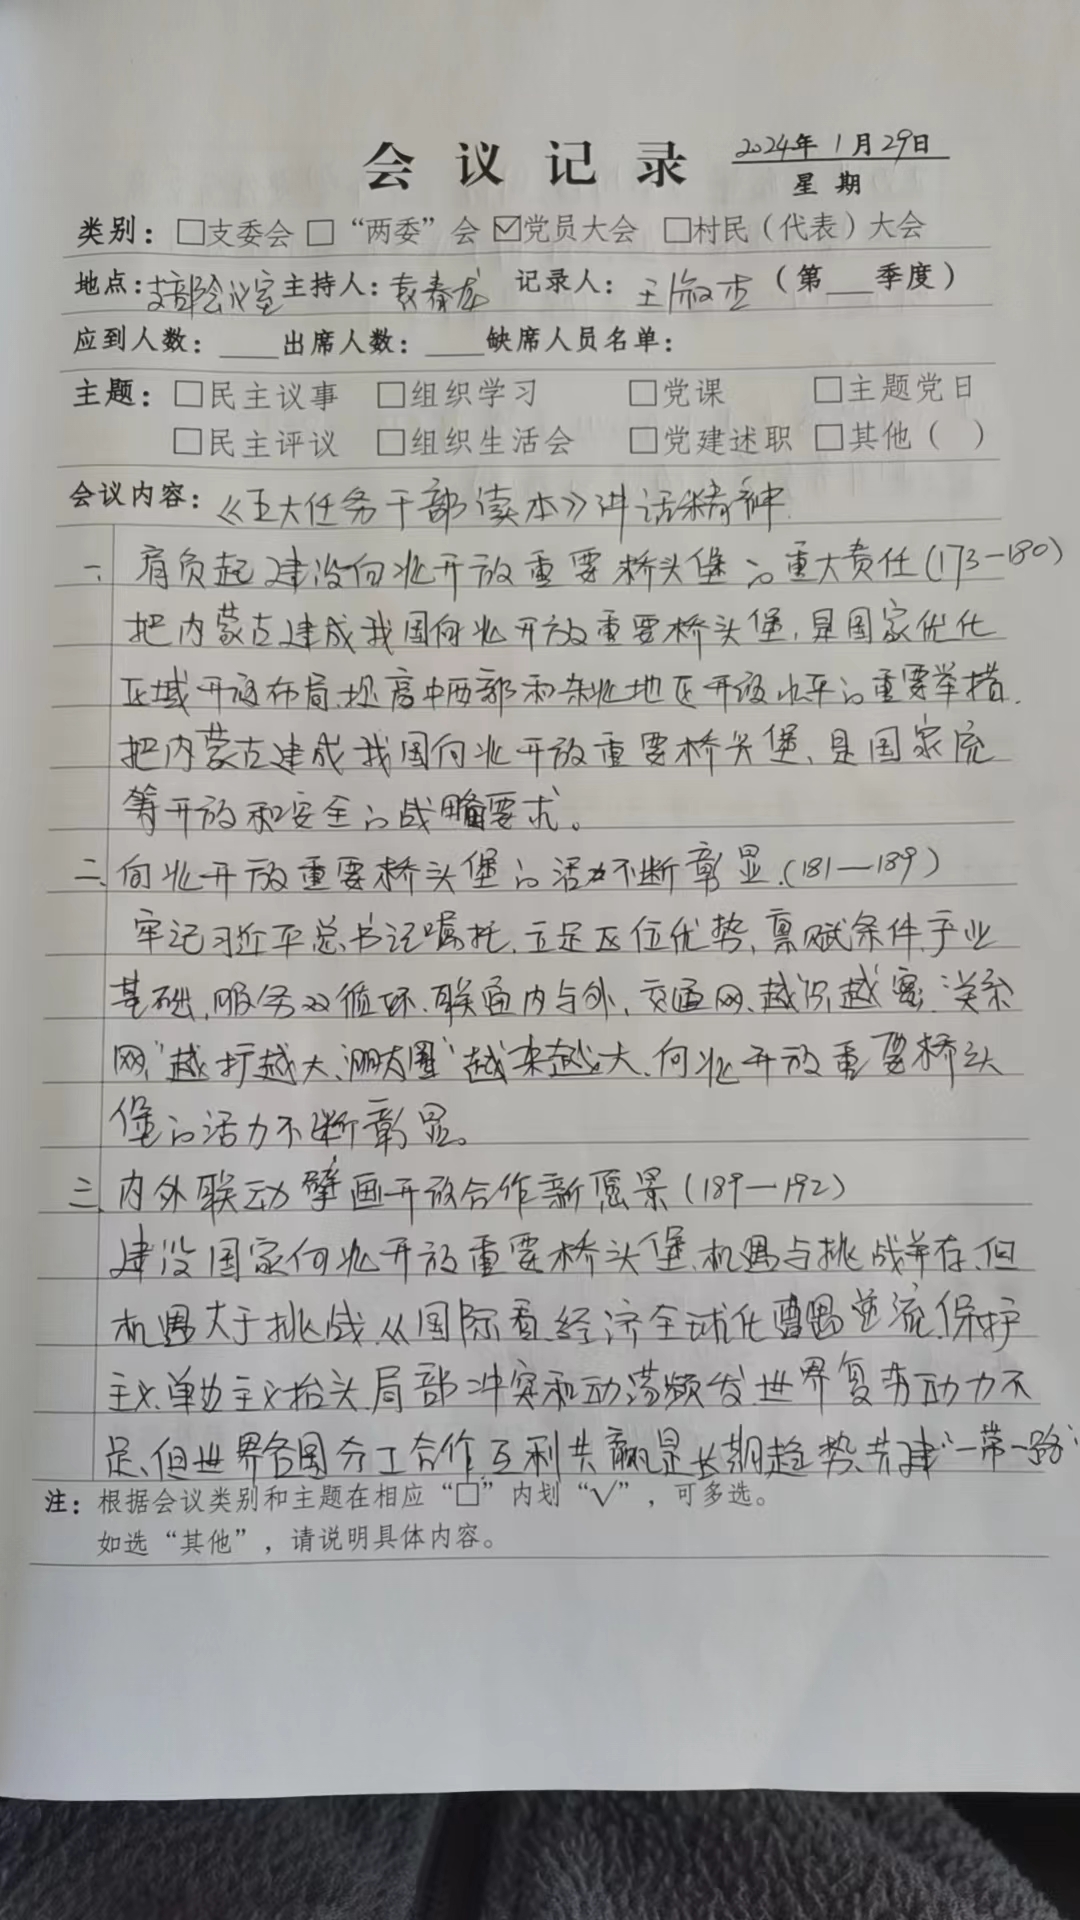 会议记录 2024年1月29日
星期
类别：□支委会 □“两委”会 ☑党员大会 □村民（代表）大会
地点：支部会议室 主持人：袁春龙 记录人：王俊杰（第___季度）
应到人数：____出席人数：____缺席人员名单：
主题：□民主议事 □组织学习 □党课 □主题党日
□民主评议 □组织生活会 □党建述职 □其他（ ）
会议内容：《五大任务干部读本》讲话精神.
一、肩负起建设向北开放重要桥头堡的重大责任(173—180)
把内蒙古建成我国向北开放重要桥头堡，是国家优化
区域开放布局、提高中西部和东北地区开放水平的重要举措.
把内蒙古建成我国向北开放重要桥头堡，是国家统
筹开放和安全的战略要求。
二、向北开放重要桥头堡的活力不断彰显.(181—189)
牢记习近平总书记嘱托，立足区位优势，禀赋条件，产业
基础，服务双循环、联通内与外，交通网、越织越密，关系
网“越扩越大、朋友圈”越来越大、向北开放重要桥头
堡的活力不断彰显。
三、内外联动擘画开放合作新愿景(189—192)
建设国家向北开放重要桥头堡、机遇与挑战并存、但
机遇大于挑战、从国际看、经济全球化遭遇逆流、保护
主义、单边主义抬头、局部冲突和动荡频发、世界复苏动力不
足、但世界各国分工合作、互利共赢是长期趋势、共建“一带一路”
注：根据会议类别和主题在相应“□”内划“√”，可多选。
如选“其他”，请说明具体内容。